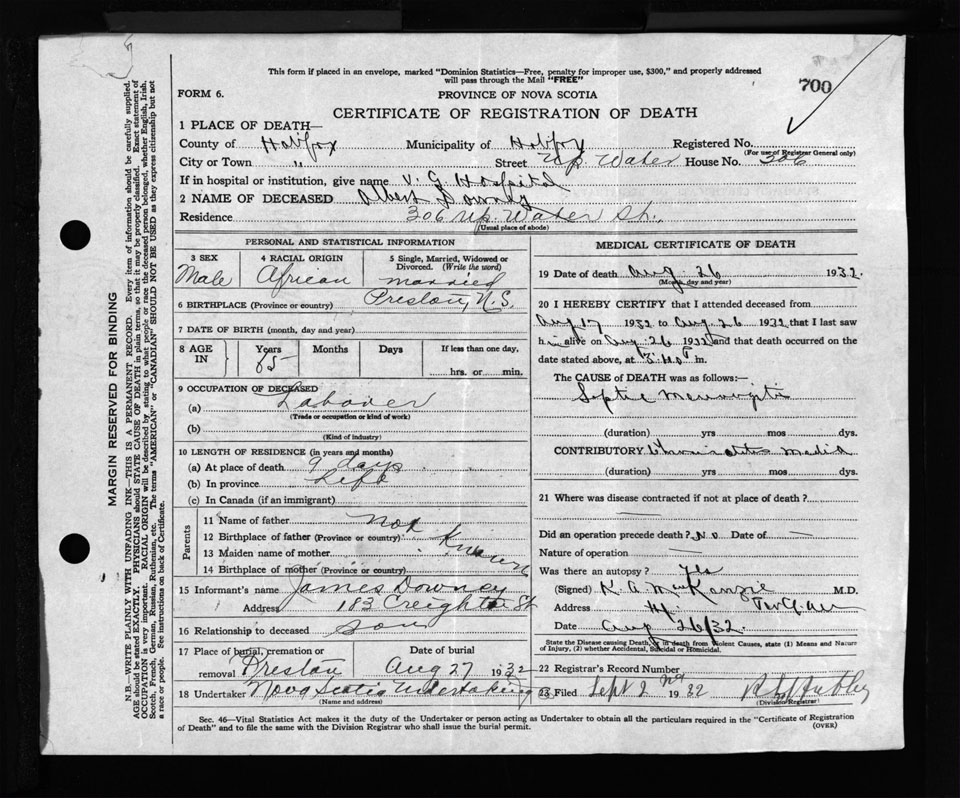 This form if placed in an envelope, marked "Dominion Statistics—Free, penalty for improper use, $300," and properly addressed
will pass through the Mail "FREE"
700
FORM 6.
PROVINCE OF NOVA SCOTIA
CERTIFICATE OF REGISTRATION OF DEATH
1 PLACE OF DEATH—
County of Halifax Municipality of Halifax Registered No.
(For use of Registrar General only)
City or Town " Street Up. Water House No. 306
If in hospital or institution, give name V. G. Hospital
2 NAME OF DECEASED Albert Downey
Residence 306 Up. Water St.
(Usual place of abode)
PERSONAL AND STATISTICAL INFORMATION
3 SEX 4 RACIAL ORIGIN 5 Single, Married, Widowed or
Divorced. (Write the word)
Male African married
6 BIRTHPLACE (Province or country) Preston, N.S.
7 DATE OF BIRTH (month, day and year)
8 AGE IN Years Months Days If less than one day,
85
hrs. or min.
9 OCCUPATION OF DECEASED
(a) Laborer
(Trade or occupation or kind of work)
(b)
(Kind of industry)
10 LENGTH OF RESIDENCE (in years and months)
(a) At place of death 9 days
(b) In province Life
(c) In Canada (if an immigrant)
Parents
11 Name of father Not
12 Birthplace of father (Province or country)
13 Maiden name of mother Known
14 Birthplace of mother (Province or country)
15 Informant's name James Downey
Address 183 Creighton St
16 Relationship to deceased son
17 Place of burial, cremation or removal Date of burial
Preston Aug 27 1932
18 Undertaker Nova Scotia Undertaking
(Name and address)
MEDICAL CERTIFICATE OF DEATH
19 Date of death Aug 26 1932
(Month, day and year)
20 I HEREBY CERTIFY that I attended deceased from
Aug 17 1932 to Aug 26 1932 that I last saw
him alive on Aug 26 1932 and that death occurred on the
date stated above, at m.
The CAUSE OF DEATH was as follows:—
Septic Meningitis
(duration) yrs mos dys.
CONTRIBUTORY Chronic otitis media
(duration) yrs mos dys.
21 Where was disease contracted if not at place of death?
Did an operation precede death? No Date of —
Nature of operation —
Was there an autopsy? Yes
(Signed) K. A. MacKenzie M.D.
Address
Date Aug 26/32
State the Disease causing Death, or in death from Violent Causes, state (1) Means and Nature
of Injury, (2) whether Accidental, Suicidal or Homicidal.
22 Registrar's Record Number
23 Filed Sept 2nd 1932
(Division Registrar)
Sec. 46—Vital Statistics Act makes it the duty of the Undertaker or person acting as Undertaker to obtain all the particulars required in the "Certificate of Registration
of Death" and to file the same with the Division Registrar who shall issue the burial permit. (OVER)
MARGIN RESERVED FOR BINDING
N.B.—WRITE PLAINLY WITH UNFADING INK—THIS IS A PERMANENT RECORD. Every item of information should be carefully supplied.
AGE should be stated EXACTLY. PHYSICIANS should STATE CAUSE OF DEATH in plain terms, so that it may be properly classified. Exact statement of
OCCUPATION is very important. RACIAL ORIGIN will be described by stating to what people or race the deceased person belonged, whether English, Irish,
Scotch, French, German, Russian, Ruthenian, etc. The terms "AMERICAN" or "CANADIAN" SHOULD NOT BE USED as they express citizenship but not
a race or people. See instructions on back of Certificate.